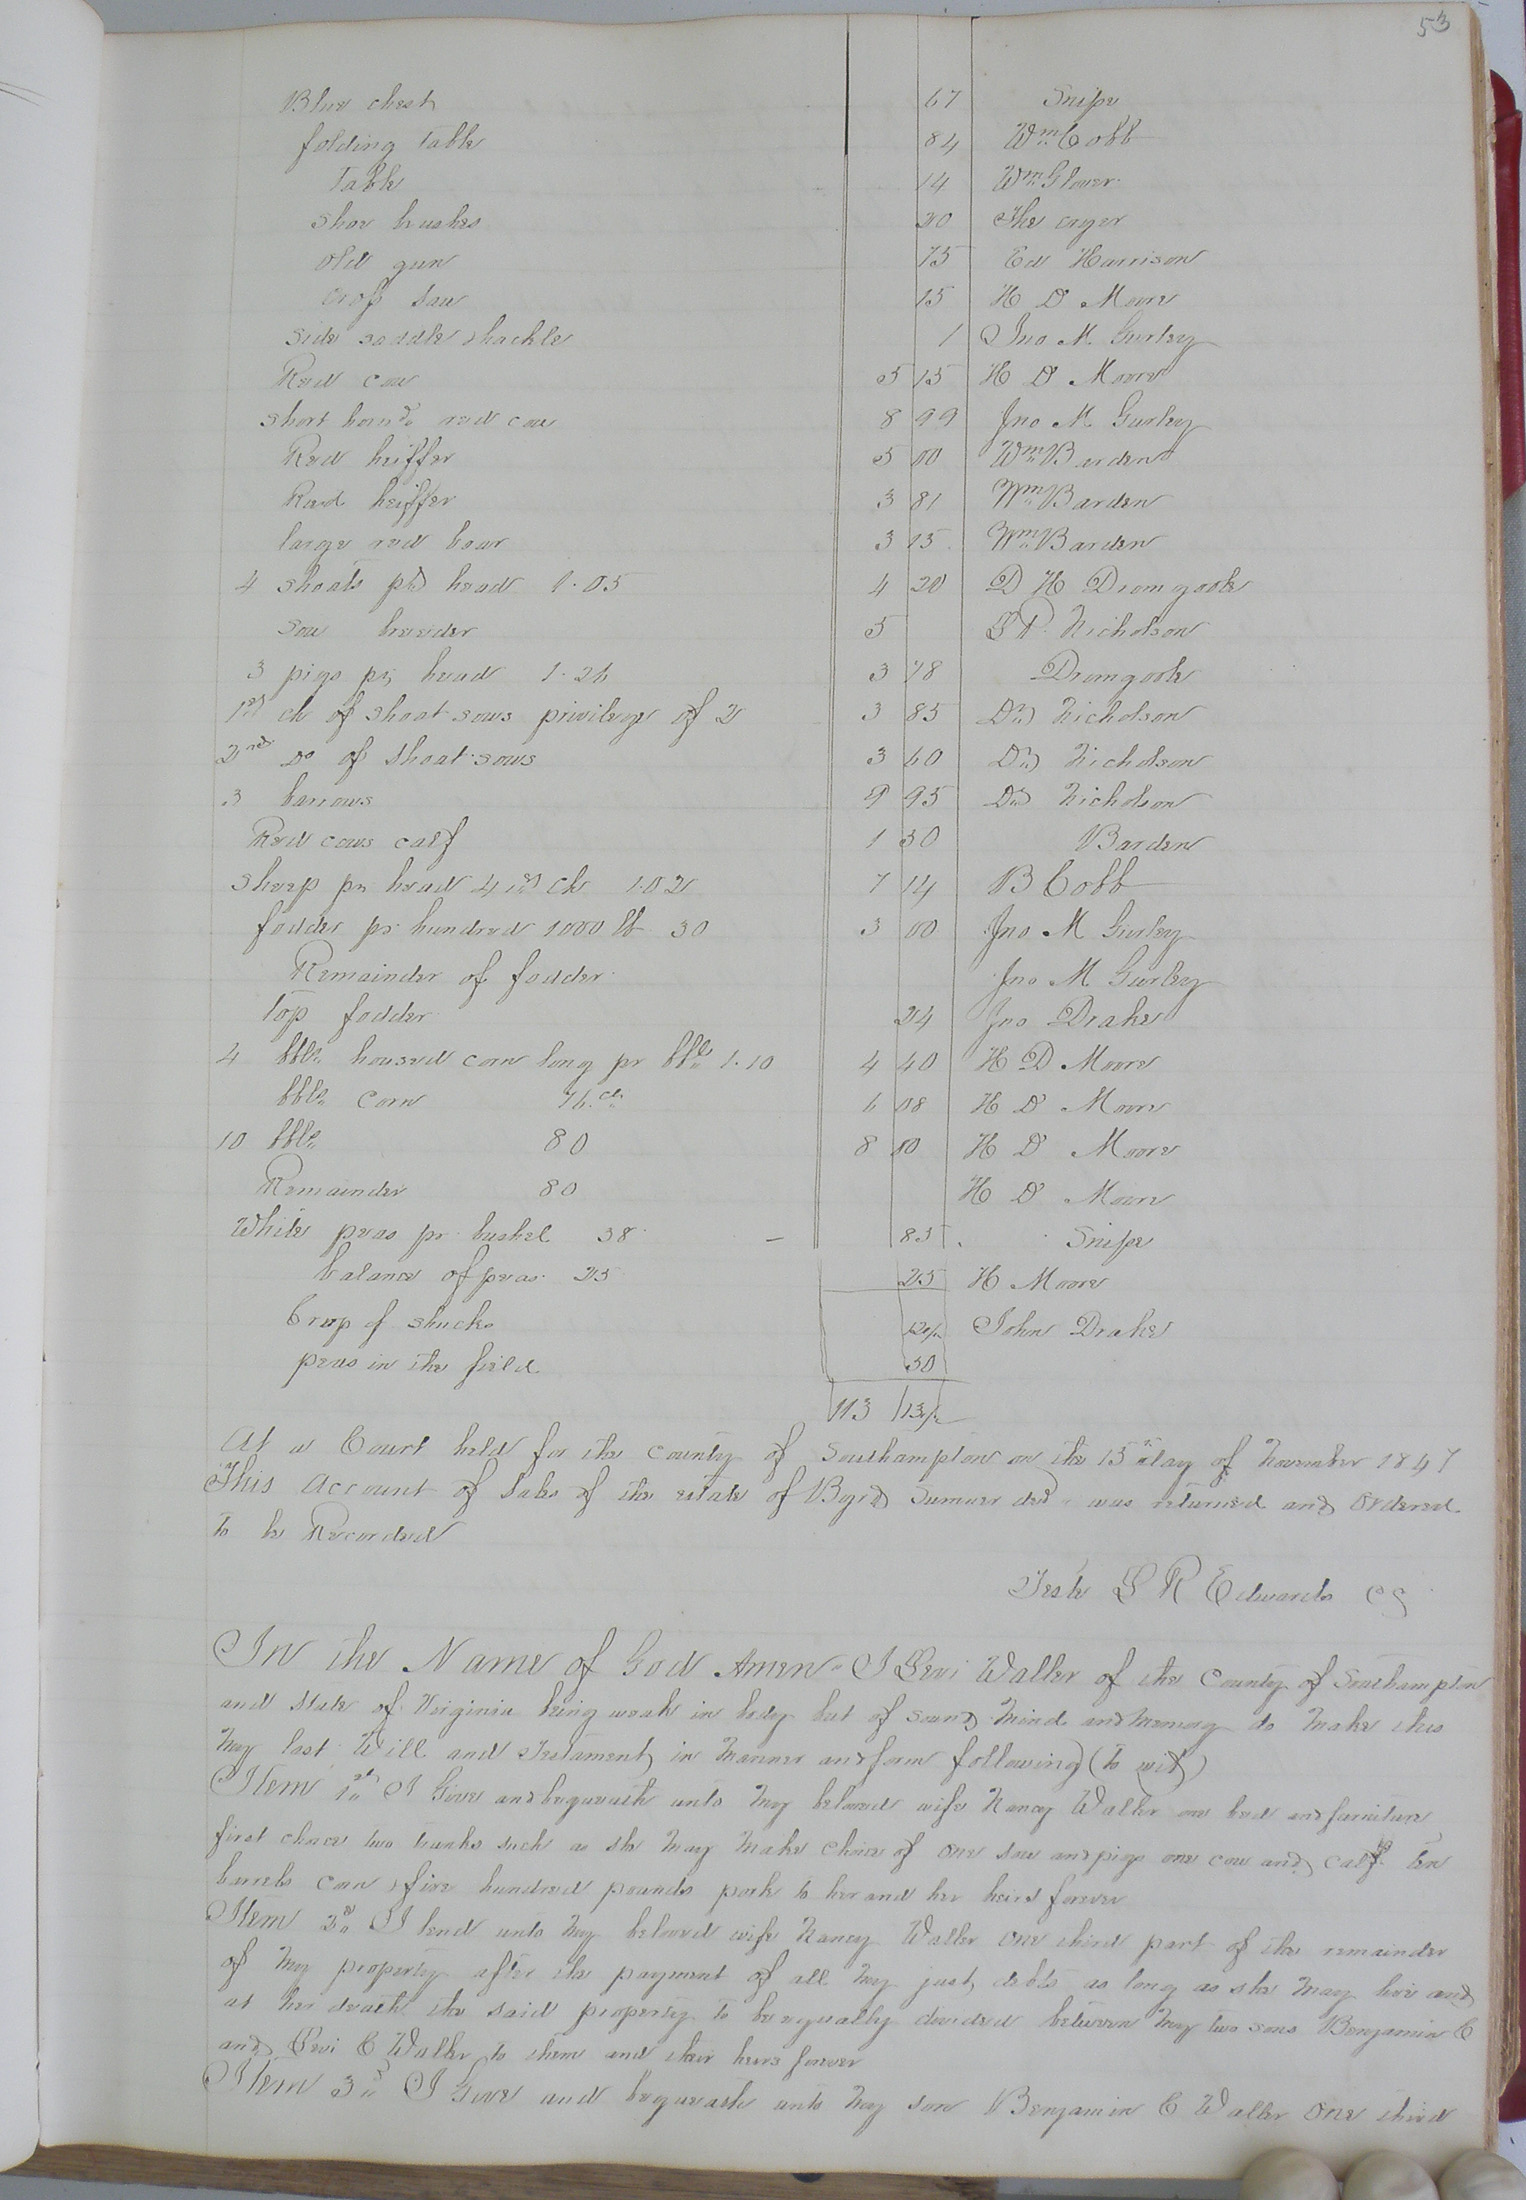 53
Blue chest 67 Snipe
folding table 84 Wm Cobb
Table 14 Wm Glover
Shoe brushes 20 The cryer
Old gun 75 Ed Harrison
Cross saw 15 H D Moore
Side saddle shackle 1 Jno M. Gurley
Red cow 5 15 H D Moore
Short horn'd red cow 8 99 Jno M Gurley
Red heiffer 5 00 Wm Barden
Red heiffer 3 81 Wm Barden
large red boar 3 15 Wm Barden
4 shoats pr head 1.05 4 20 D H Dromgoole
Sow breeder 5 Nicholson
3 pigs pr head 1.26 3 78 Dromgoole
1st ch of shoat sows privilege of 2 3 85 Dr Nicholson
2nd Do of shoat sows 3 60 Dr Nicholson
3 barrows 9 95 Dr Nicholson
Red cows calf 1 30 Barden
Sheep pr head 4 1st ch 1.02 7 14 B Cobb
fodder pr hundred 1000 lb 30 3 00 Jno M Gurley
Remainder of fodder Jno M Gurley
Top fodder 24 Jno Drake
4 bbls housed corn long pr bbl 1.10 4 40 H D Moore
bbls Corn 76 cts 6 08 H D Moore
10 bbls 80 8 00 H D Moore
Remainder 80 H D Moore
White peas pr bushel 38 85 Snipe
balance of peas 25 25 H Moore
Crop of shucks 12½ John Drake
peas in the field 50
113 13½
At a Court held for the County of Southampton on the 15th day of November 1847
This Account of Sales of the estate of Byrd Sumner decd was returned and Ordered
to be Recorded
Teste L R Edwards CC
In the Name of God Amen I Levi Waller of the County of Southampton
and State of Virginia being weak in body but of sound Mind and Memory do Make this
My last Will and Testament in Manner and form following (to wit)
Item 1st I Give and bequeath unto My beloved wife Nancy Waller one bed and furniture
first choice two trunks such as she May Make Choice of One sow and pigs one cow and calf ten
barrels corn, five hundred pounds pork to her and her heirs forever
Item 2d I lend unto My beloved wife Nancy Waller One third part of the remainder
of My property after the payment of all My just debts as long as she May live and
at her death the said property to be equally divided between My two sons Benjamin C
and Levi C Waller to them and their heirs forever
Item 3d I Give and bequeath unto My son Benjamin C Waller One third